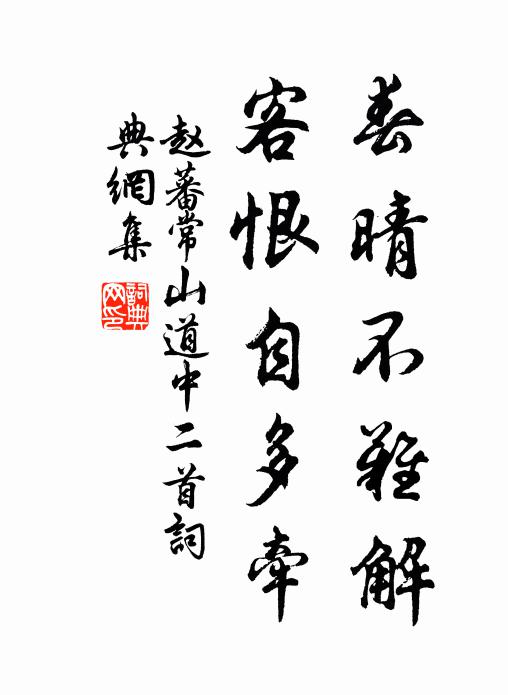 春晴不难解
客恨自多牵
赵蕃常山道中二首詞
典網集
詞典網印